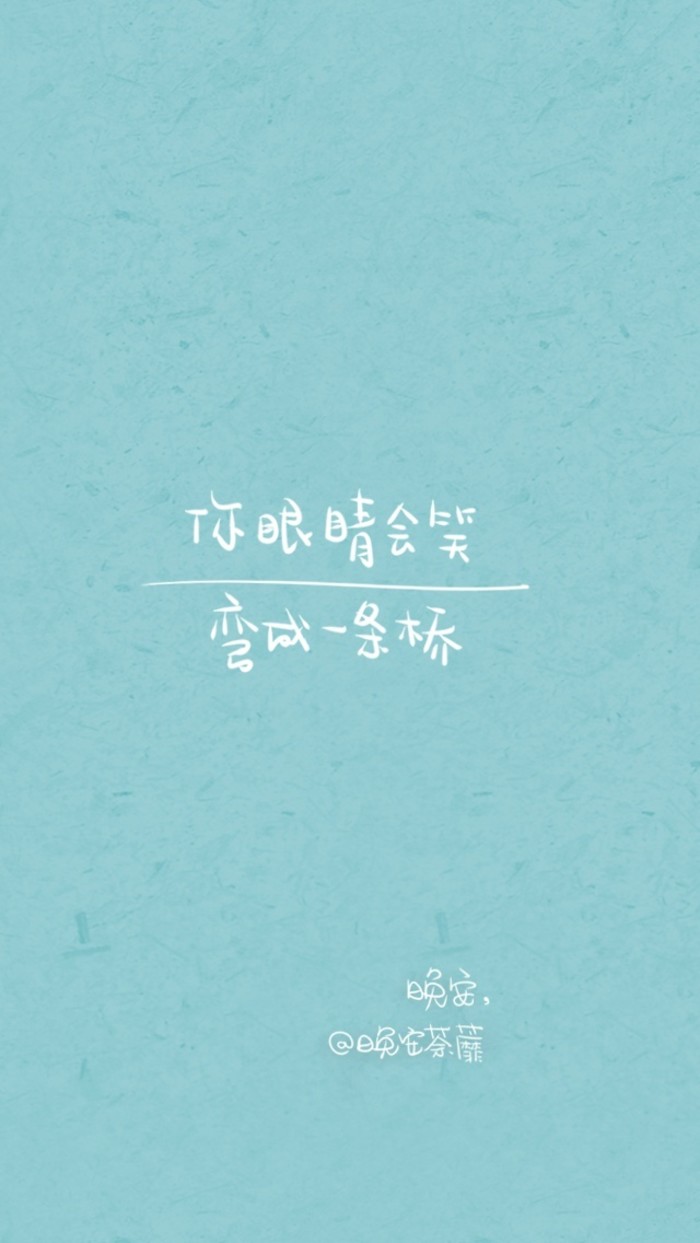 你眼睛会笑
弯成一条桥
晚安,
@晚安荼蘼